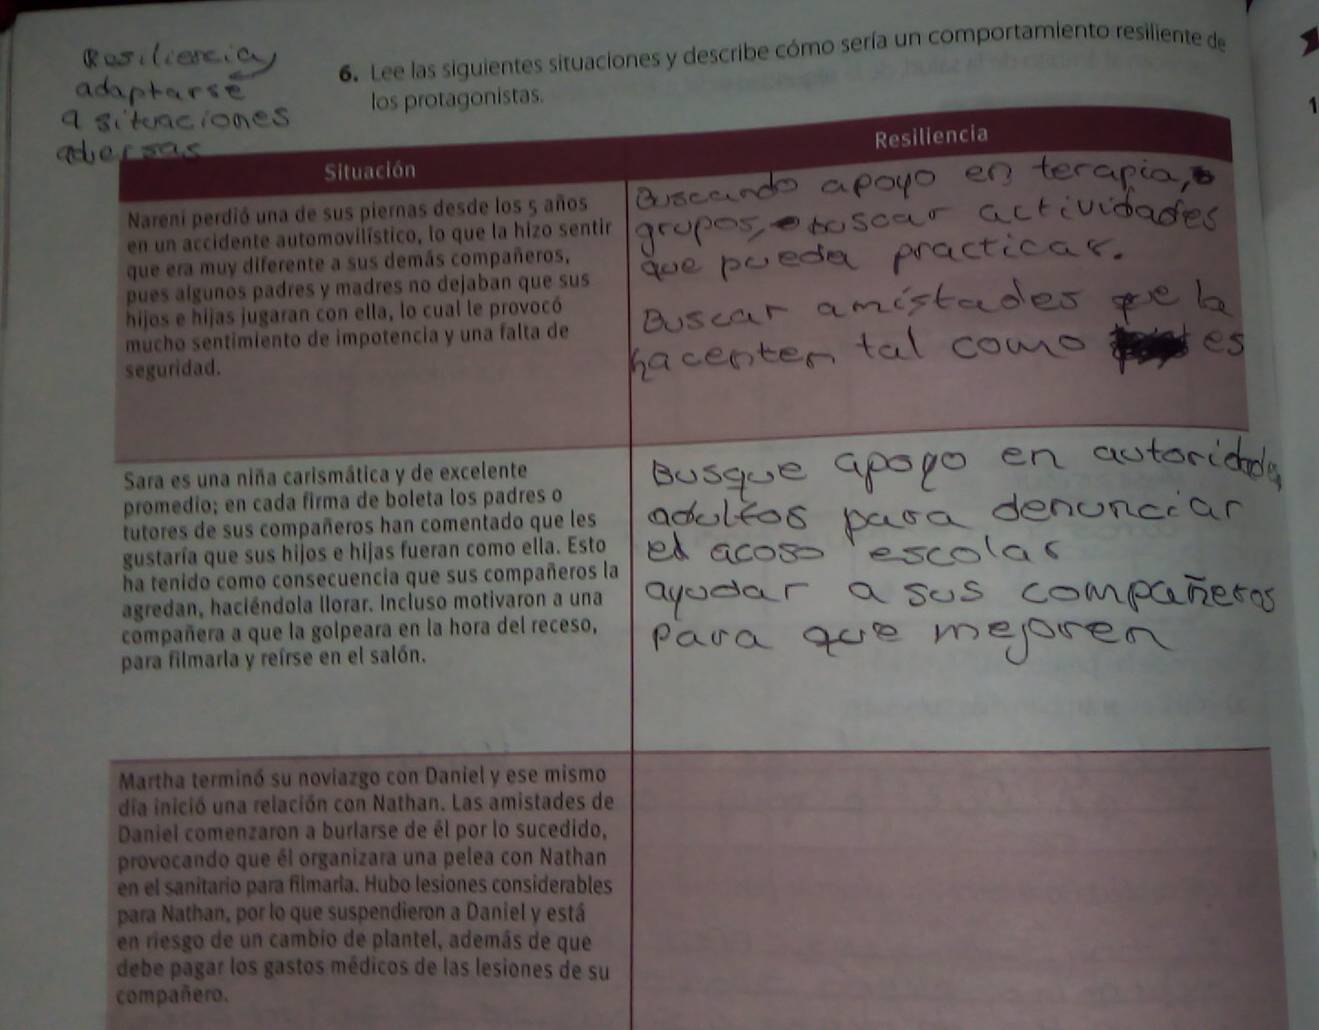 Resiliencia
adaptarse
a situaciones
adversas
6. Lee las siguientes situaciones y describe cómo sería un comportamiento resiliente de
los protagonistas.
Situación
Resiliencia
Nareni perdió una de sus piernas desde los 5 años
en un accidente automovilístico, lo que la hizo sentir
que era muy diferente a sus demás compañeros,
pues algunos padres y madres no dejaban que sus
hijos e hijas jugaran con ella, lo cual le provocó
mucho sentimiento de impotencia y una falta de
seguridad.
Buscando apoyo en terapia,
grupos, buscar actividades
que pueda practicar.
Buscar amistades que la
hacenten tal como es
Sara es una niña carismática y de excelente
promedio; en cada firma de boleta los padres o
tutores de sus compañeros han comentado que les
gustaría que sus hijos e hijas fueran como ella. Esto
ha tenido como consecuencia que sus compañeros la
agredan, haciéndola llorar. Incluso motivaron a una
compañera a que la golpeara en la hora del receso,
para filmarla y reírse en el salón.
Busque apoyo en autoridades
adultos para denunciar
el acoso escolar
ayudar a sus compañeros
para que mejoren
Martha terminó su noviazgo con Daniel y ese mismo
día inició una relación con Nathan. Las amistades de
Daniel comenzaron a burlarse de él por lo sucedido,
provocando que él organizara una pelea con Nathan
en el sanitario para filmarla. Hubo lesiones considerables
para Nathan, por lo que suspendieron a Daniel y está
en riesgo de un cambio de plantel, además de que
debe pagar los gastos médicos de las lesiones de su
compañero.
1